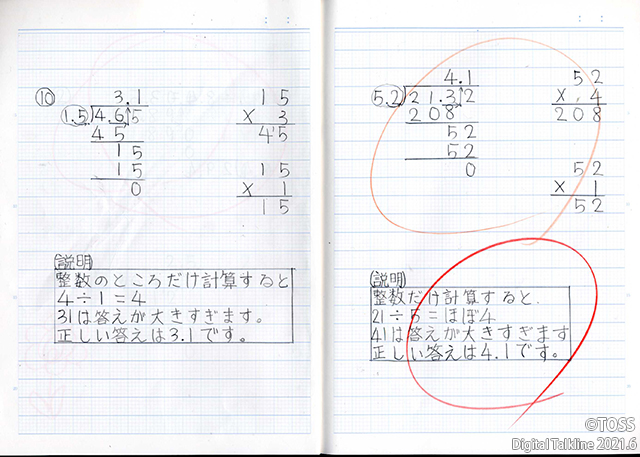 ⑩
3.1
1.5 4.65
45
15
15
0
15
× 3
45
15
× 1
15
説明
整数のところだけ計算すると
4÷1=4
31は答えが大きすぎます。
正しい答えは3.1です。
4.1
5.2 21.32
208
52
52
0
52
× 4
208
52
× 1
52
説明
整数だけ計算すると.
21÷5=ほぼ4
41は答えが大きすぎます
正しい答えは4.1です。
©TOSS
Digital Talkline 2021.6